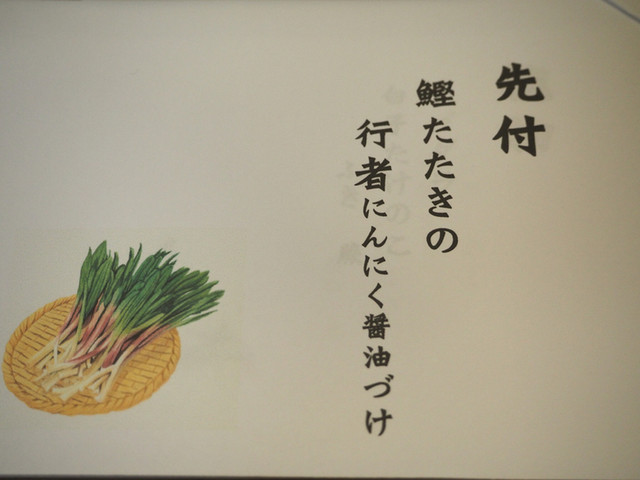 先付
鰹たたきの
行者にんにく醤油づけ